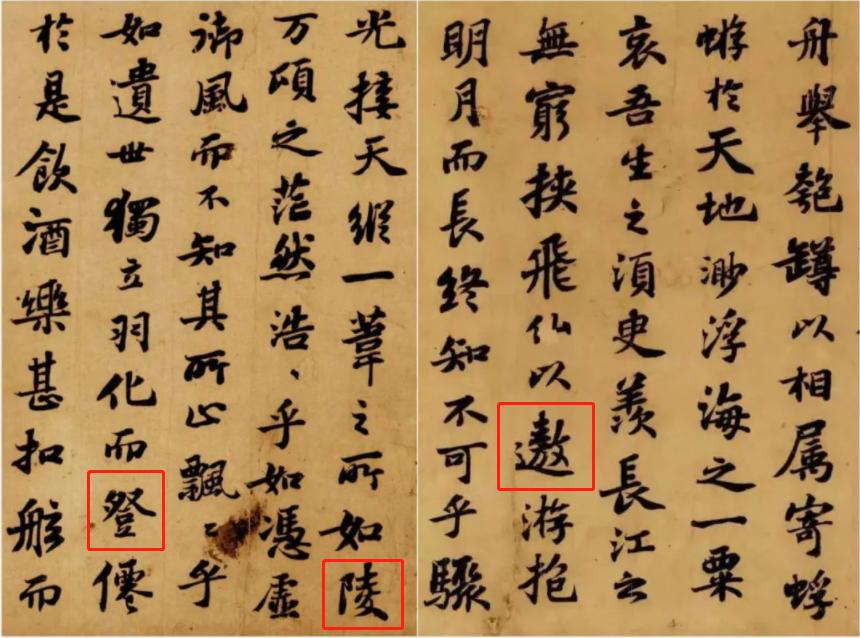 光接天縱一葦之所如陵
万頃之茫然浩、乎如憑虛
御風而不知其所止飄〻乎
如遺世獨立羽化而登僊
於是飲酒樂甚扣舷而
舟舉匏罇以相属寄蜉
蝣於天地渺浮海之一粟
哀吾生之須臾羨長江之
無窮挾飛仙以遨游抱
明月而長終知不可乎驟